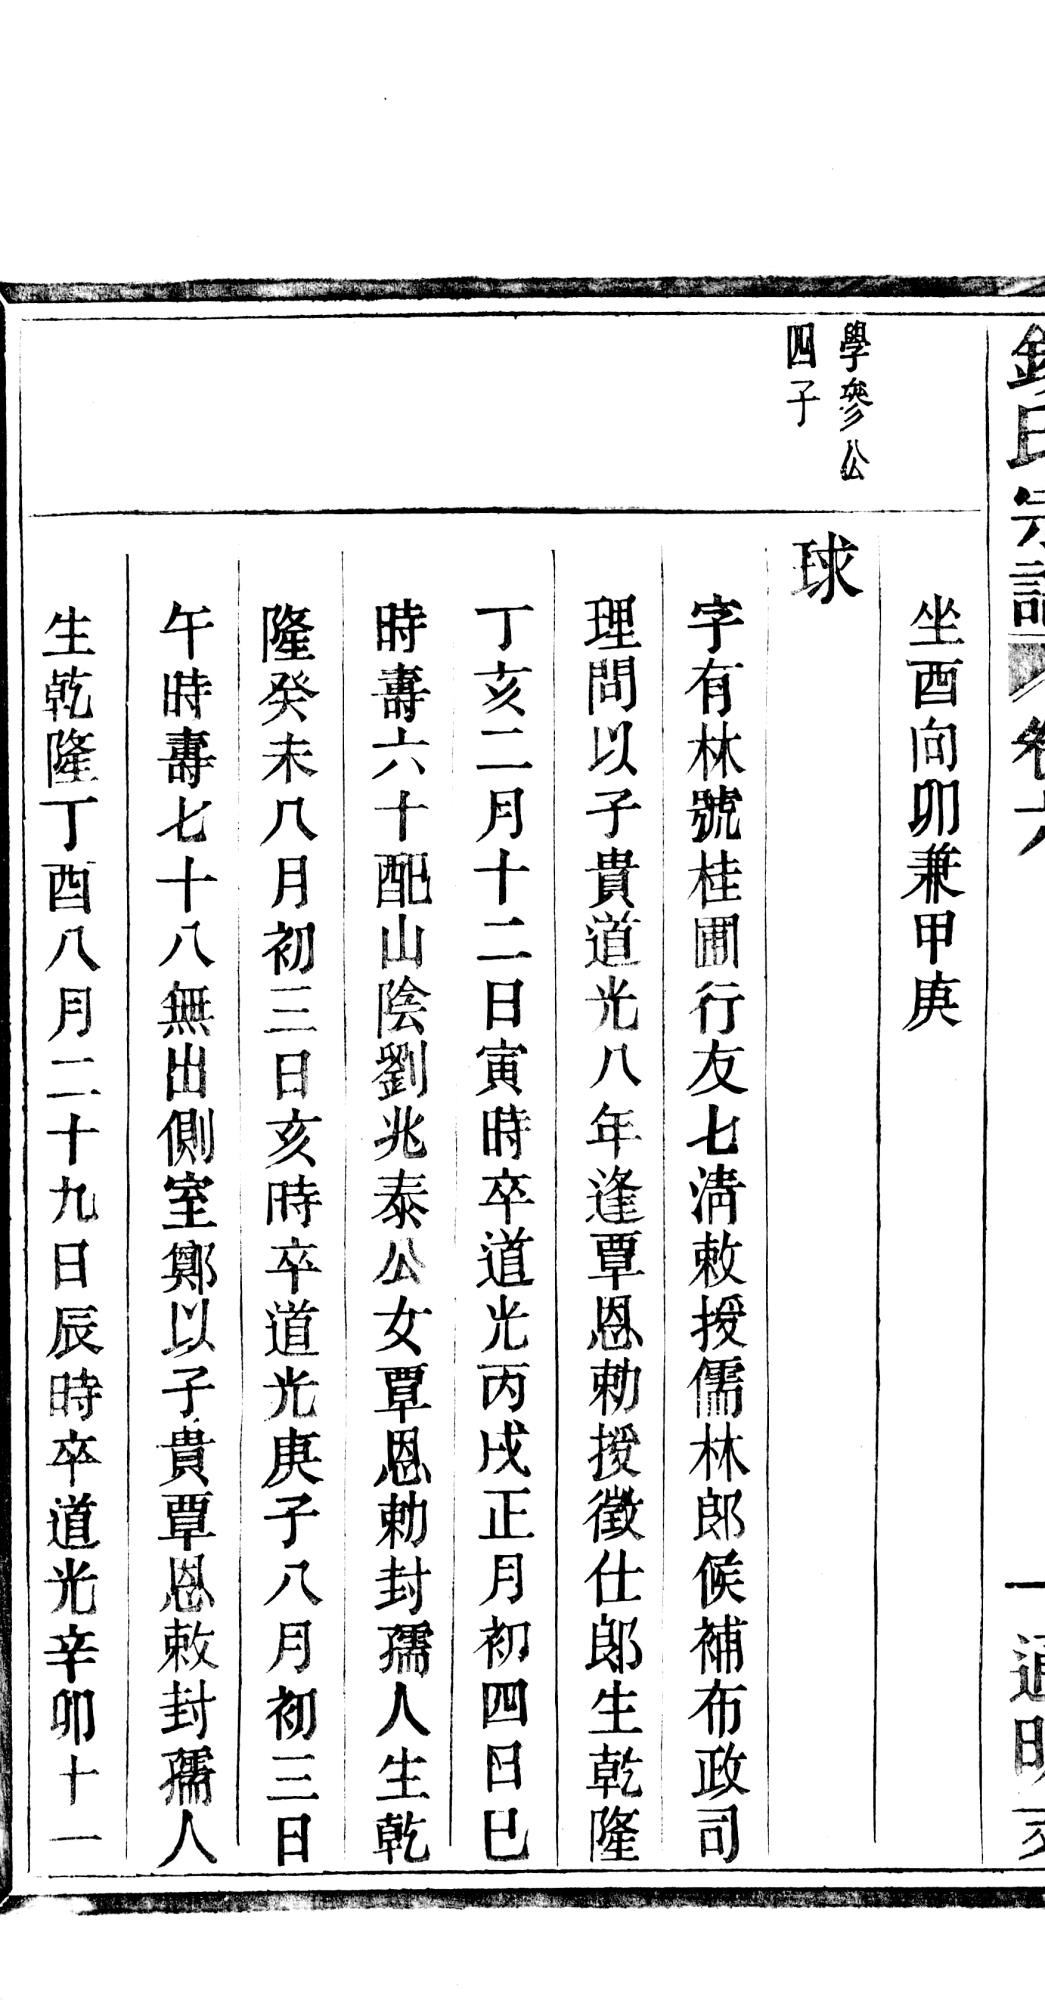 氏宗譜 卷六
坐酉向卯兼甲庚
學參公
四子
球
字有林號桂圃行友七淸敕授儒林郎候補布政司
理問以子貴道光八年逢覃恩勅授徵仕郎生乾隆
丁亥二月十二日寅時卒道光丙戌正月初四日巳
時壽六十配山陰劉兆泰公女覃恩勅封孺人生乾
隆癸未八月初三日亥時卒道光庚子八月初三日
午時壽七十八無出側室鄭以子貴覃恩敕封孺人
生乾隆丁酉八月二十九日辰時卒道光辛卯十一